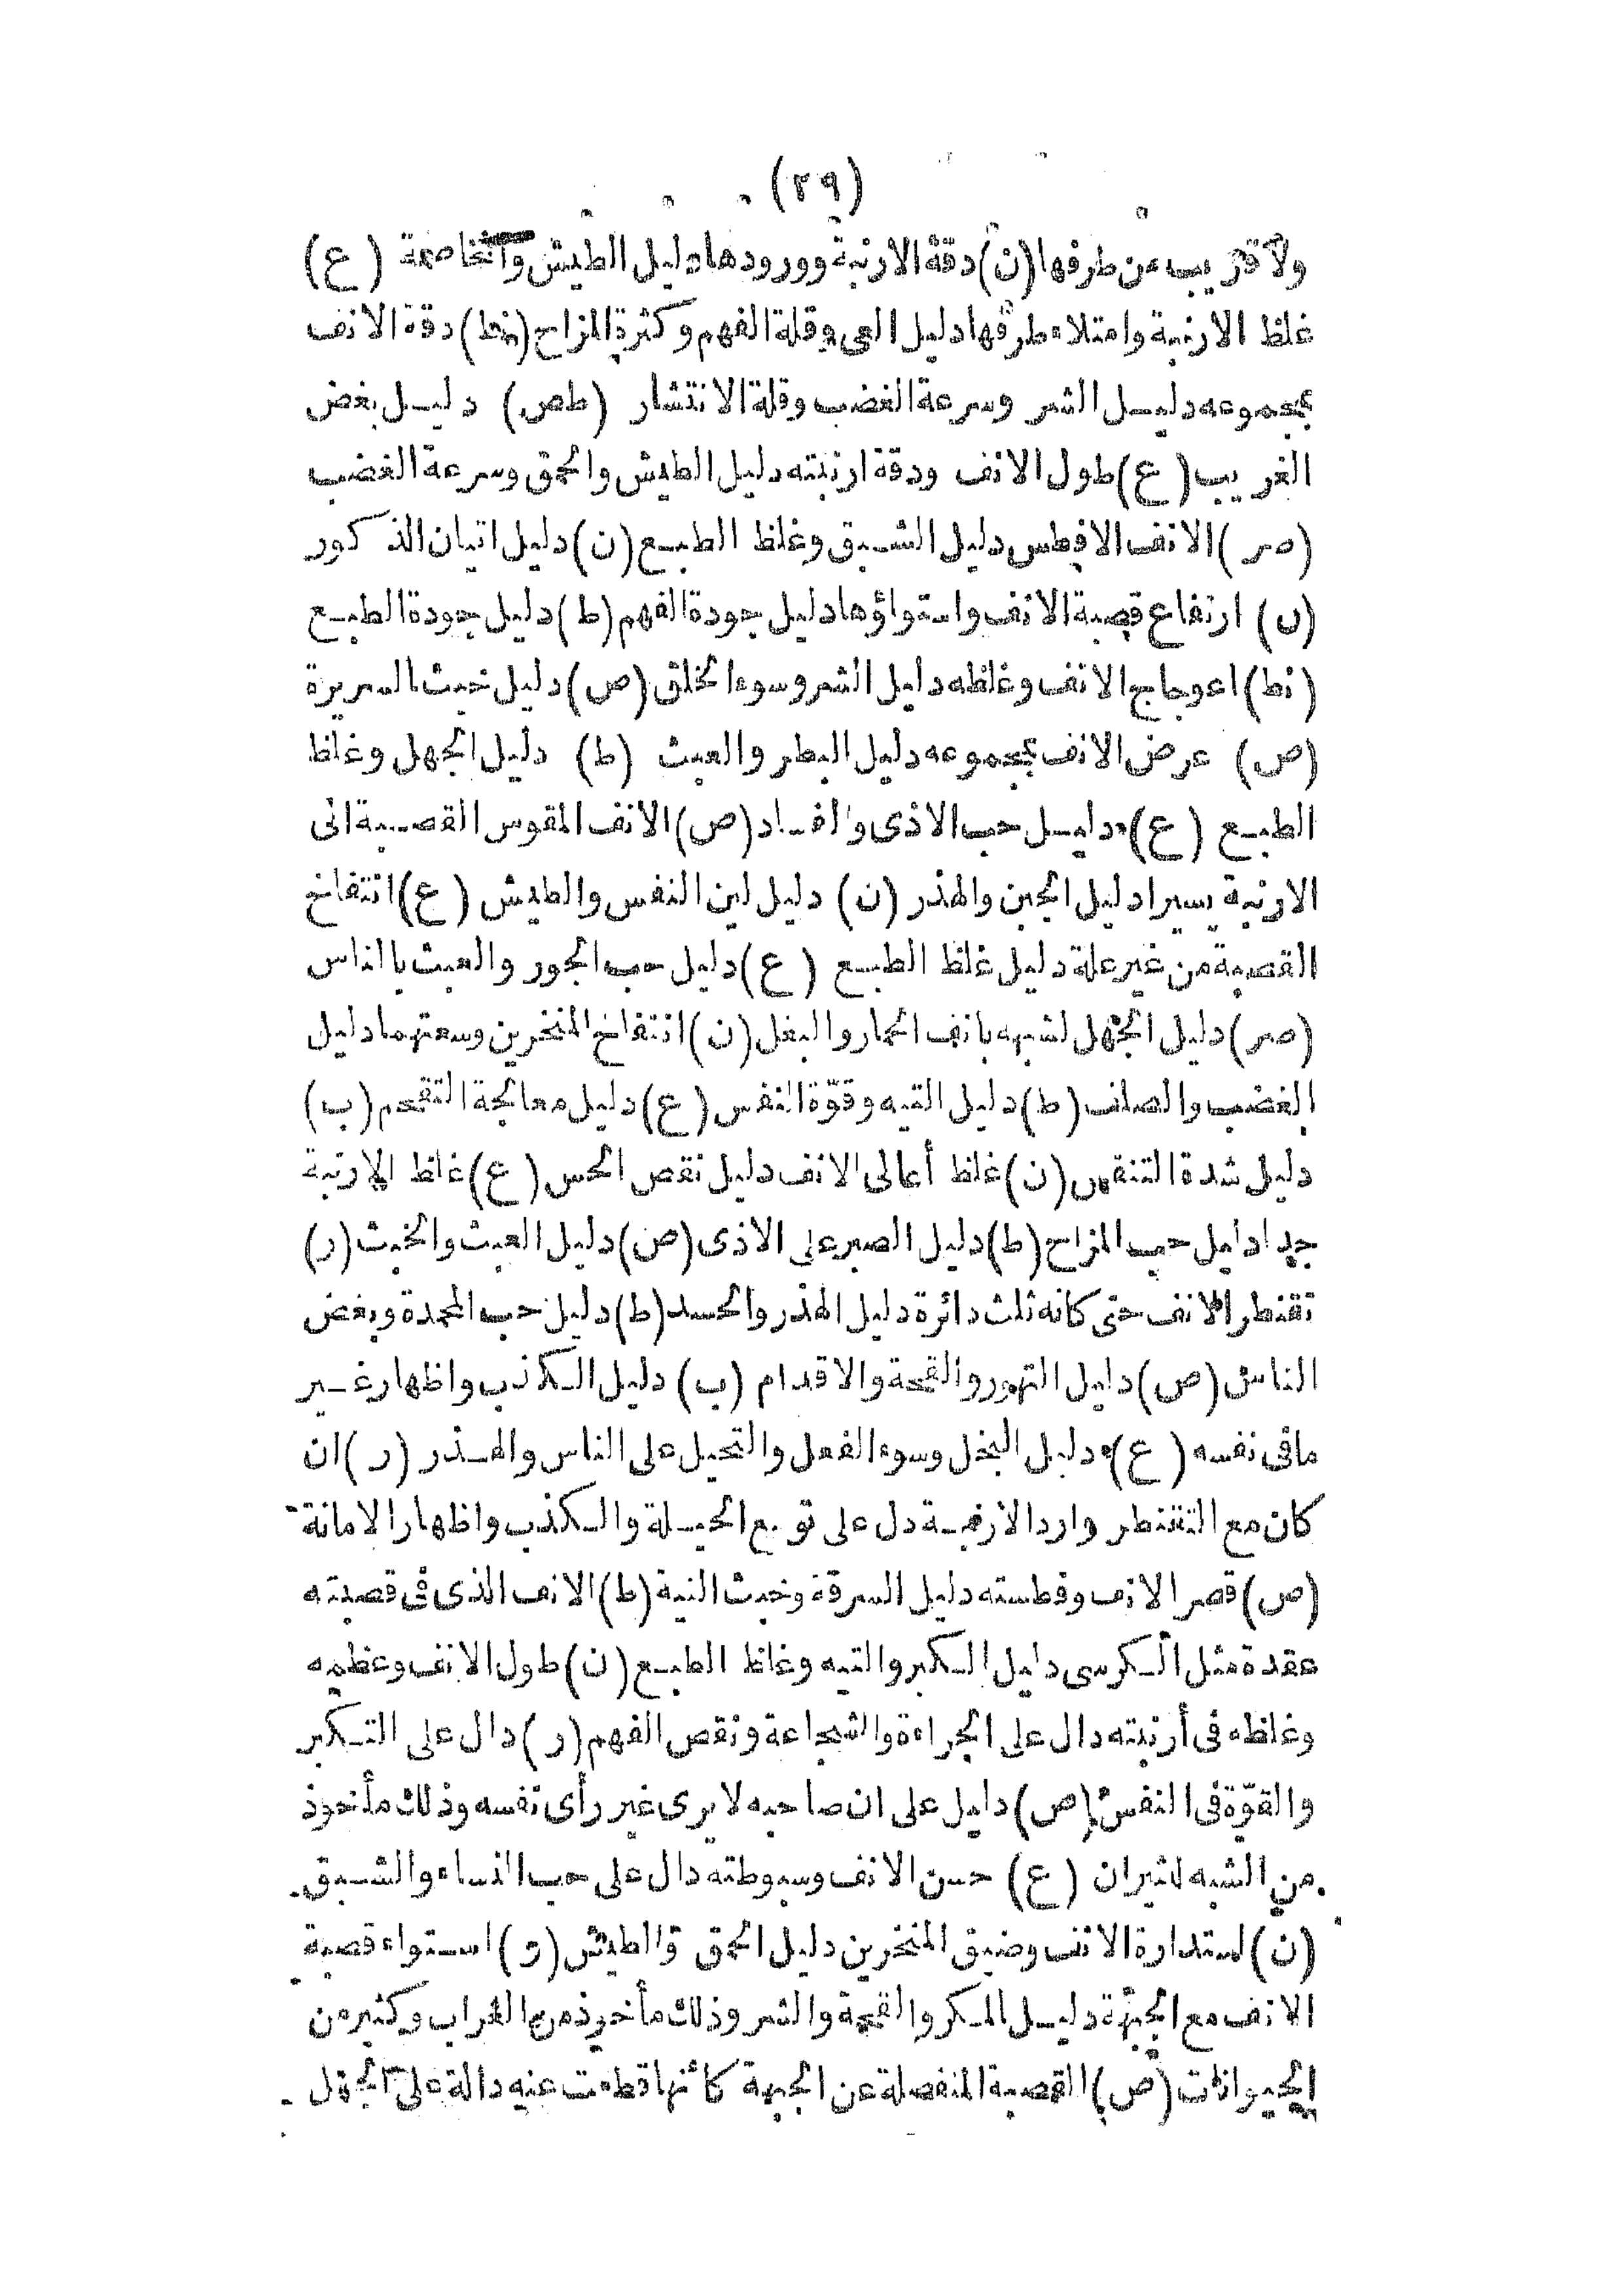 (٢٩)
ولا قريب من طرفها (ن) دقة الارنبة وورودها دليل الطيش والمخاصمة (ع)
غلظ الارنبة وامتلاء طرفها دليل العي وقلة الفهم وكثرة المزاح (نط) دقة الانف
بمجموعه دليل الشر وسرعة الغضب وقلة الانتشار (طص) دليل بغض
الغريب (ع) طول الانف ودقة ارنبته دليل الطيش والحمق وسرعة الغضب
(صر) الانف الافطس دليل الشبق وغلظ الطبع (ن) دليل اتيان الذكور
(ں) ارتفاع قصبة الانف واستواؤها دليل جودة الفهم (ط) دليل جودة الطبع
(نط) اعوجاج الانف وغلظه دليل الشر وسوء الخلق (ص) دليل خبث السريرة
(ص) عرض الانف بمجموعه دليل البطر والعبث (ط) دليل الجهل وغلظ
الطبع (ع) دليل حب الاذى والفساد (ص) الانف المقوس القصبة الى
الارنبة يسيرا دليل الجبن والهذر (ن) دليل لين النفس والطيش (ع) انتفاخ
القصبة من غير علة دليل غلظ الطبع (ع) دليل حب الجور والعبث بالناس
(صر) دليل الجهل لشبهه بانف الحمار والبغل (ن) انتفاخ المنخرين وسعتهما دليل
الغضب والصلف (ط) دليل التيه وقوّة النفس (ع) دليل معالجة التقحم (ب)
دليل شدة التنفس (ن) غلظ أعالى الانف دليل نقص الحس (ع) غلظ الارنبة
جدا دليل حب المزاح (ط) دليل الصبر على الاذى (ص) دليل العبث والخبث (ر)
تقنطر الانف حتى كانه ثلث دائرة دليل الهذر والحسد (ط) دليل حب المحمدة وبغض
الناس (ص) دليل التهور والقحة والاقدام (ب) دليل الكذب واظهار غير
مافى نفسه (ع) دليل البخل وسوء الفعل والتحيل على الناس والهذر (ر) ان
كان مع التقنطر وارد الارنبة دل على الحيلة والكذب واظهار الامانة
(ص) قصر الانف وفطسته دليل السرقة وخبث النية (ط) الانف الذى فى قصبته
عقدة مثل الكرسى دليل الكبر والتيه وغلظ الطبع (ن) طول الانف وعظمه
وغلظه فى أرنبته دال على الجراءة والشجاعة ونقص الفهم (ر) دال على التكبر
والقوّة فى النفس (ص) دليل على ان صاحبه لا يرى غير رأى نفسه وذلك مأخوذ
من الشبه للثيران (ع) حسن الانف وسبوطته دال على حب النساء والشبق
(ن) استدارة الانف وضيق المنخرين دليل الحمق والطيش (ر) استواء قصبة
الانف مع الجبهة دليل المكر والقحة والشر وذلك مأخوذ من الغراب وكثير من
الحيوانات (ص) القصبة المنفصلة عن الجبهة كأنها قطعت عنه دالة على الجهل